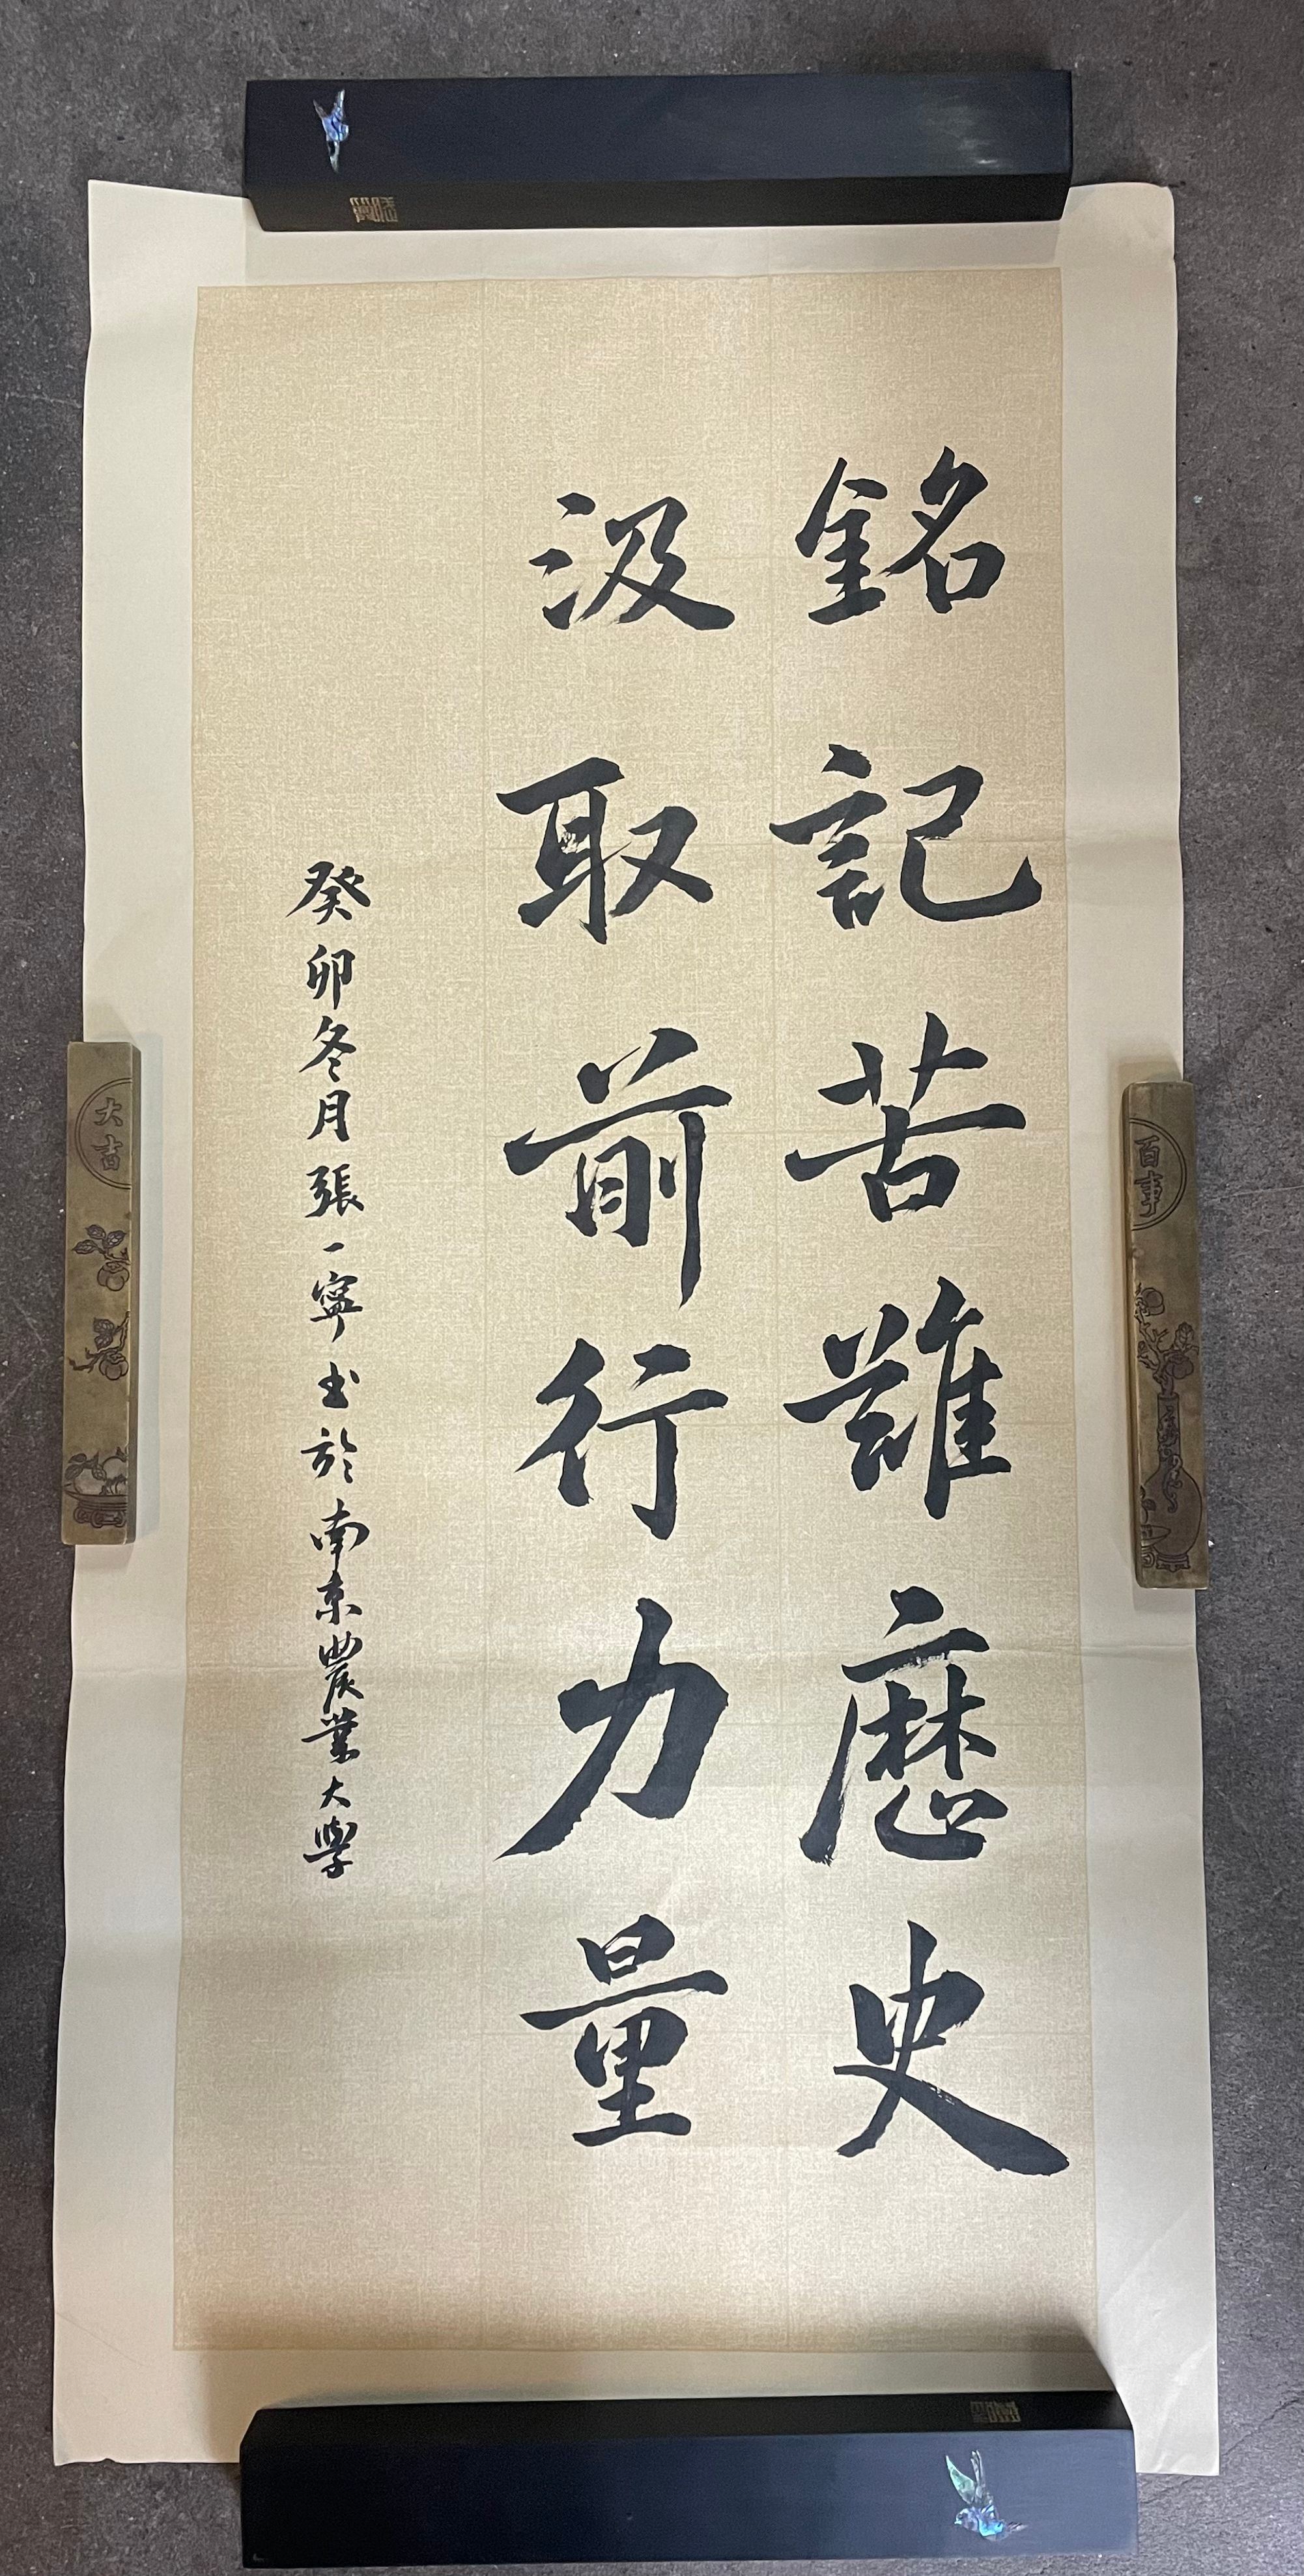 銘記苦難歷史
汲取前行力量
癸卯冬月張一寧书於南京農業大學
百事
大吉